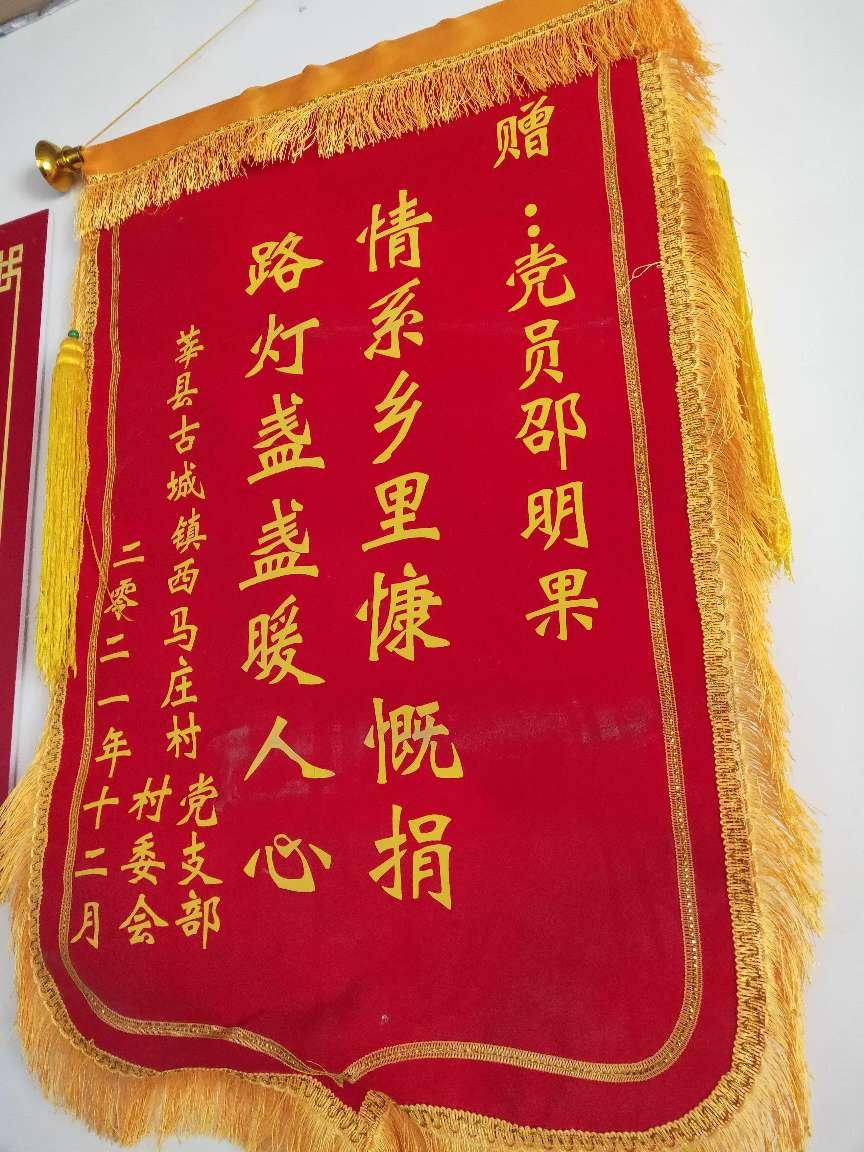 赠：党员邵明果
情系乡里慷慨捐
路灯盏盏暖人心
莘县古城镇西马庄村党支部
村委会
二零二一年十二月